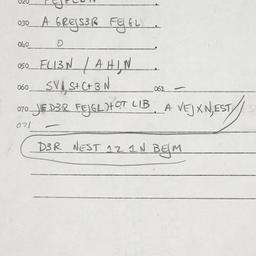 030 A GREJS3R FEJGL.
040 0
050 FLI3N / A HJ,N
060 061 —
070 JED3R FEJGL LIB. A VEJXN,EST
071 —
D3R NEST 12 1N BEJM